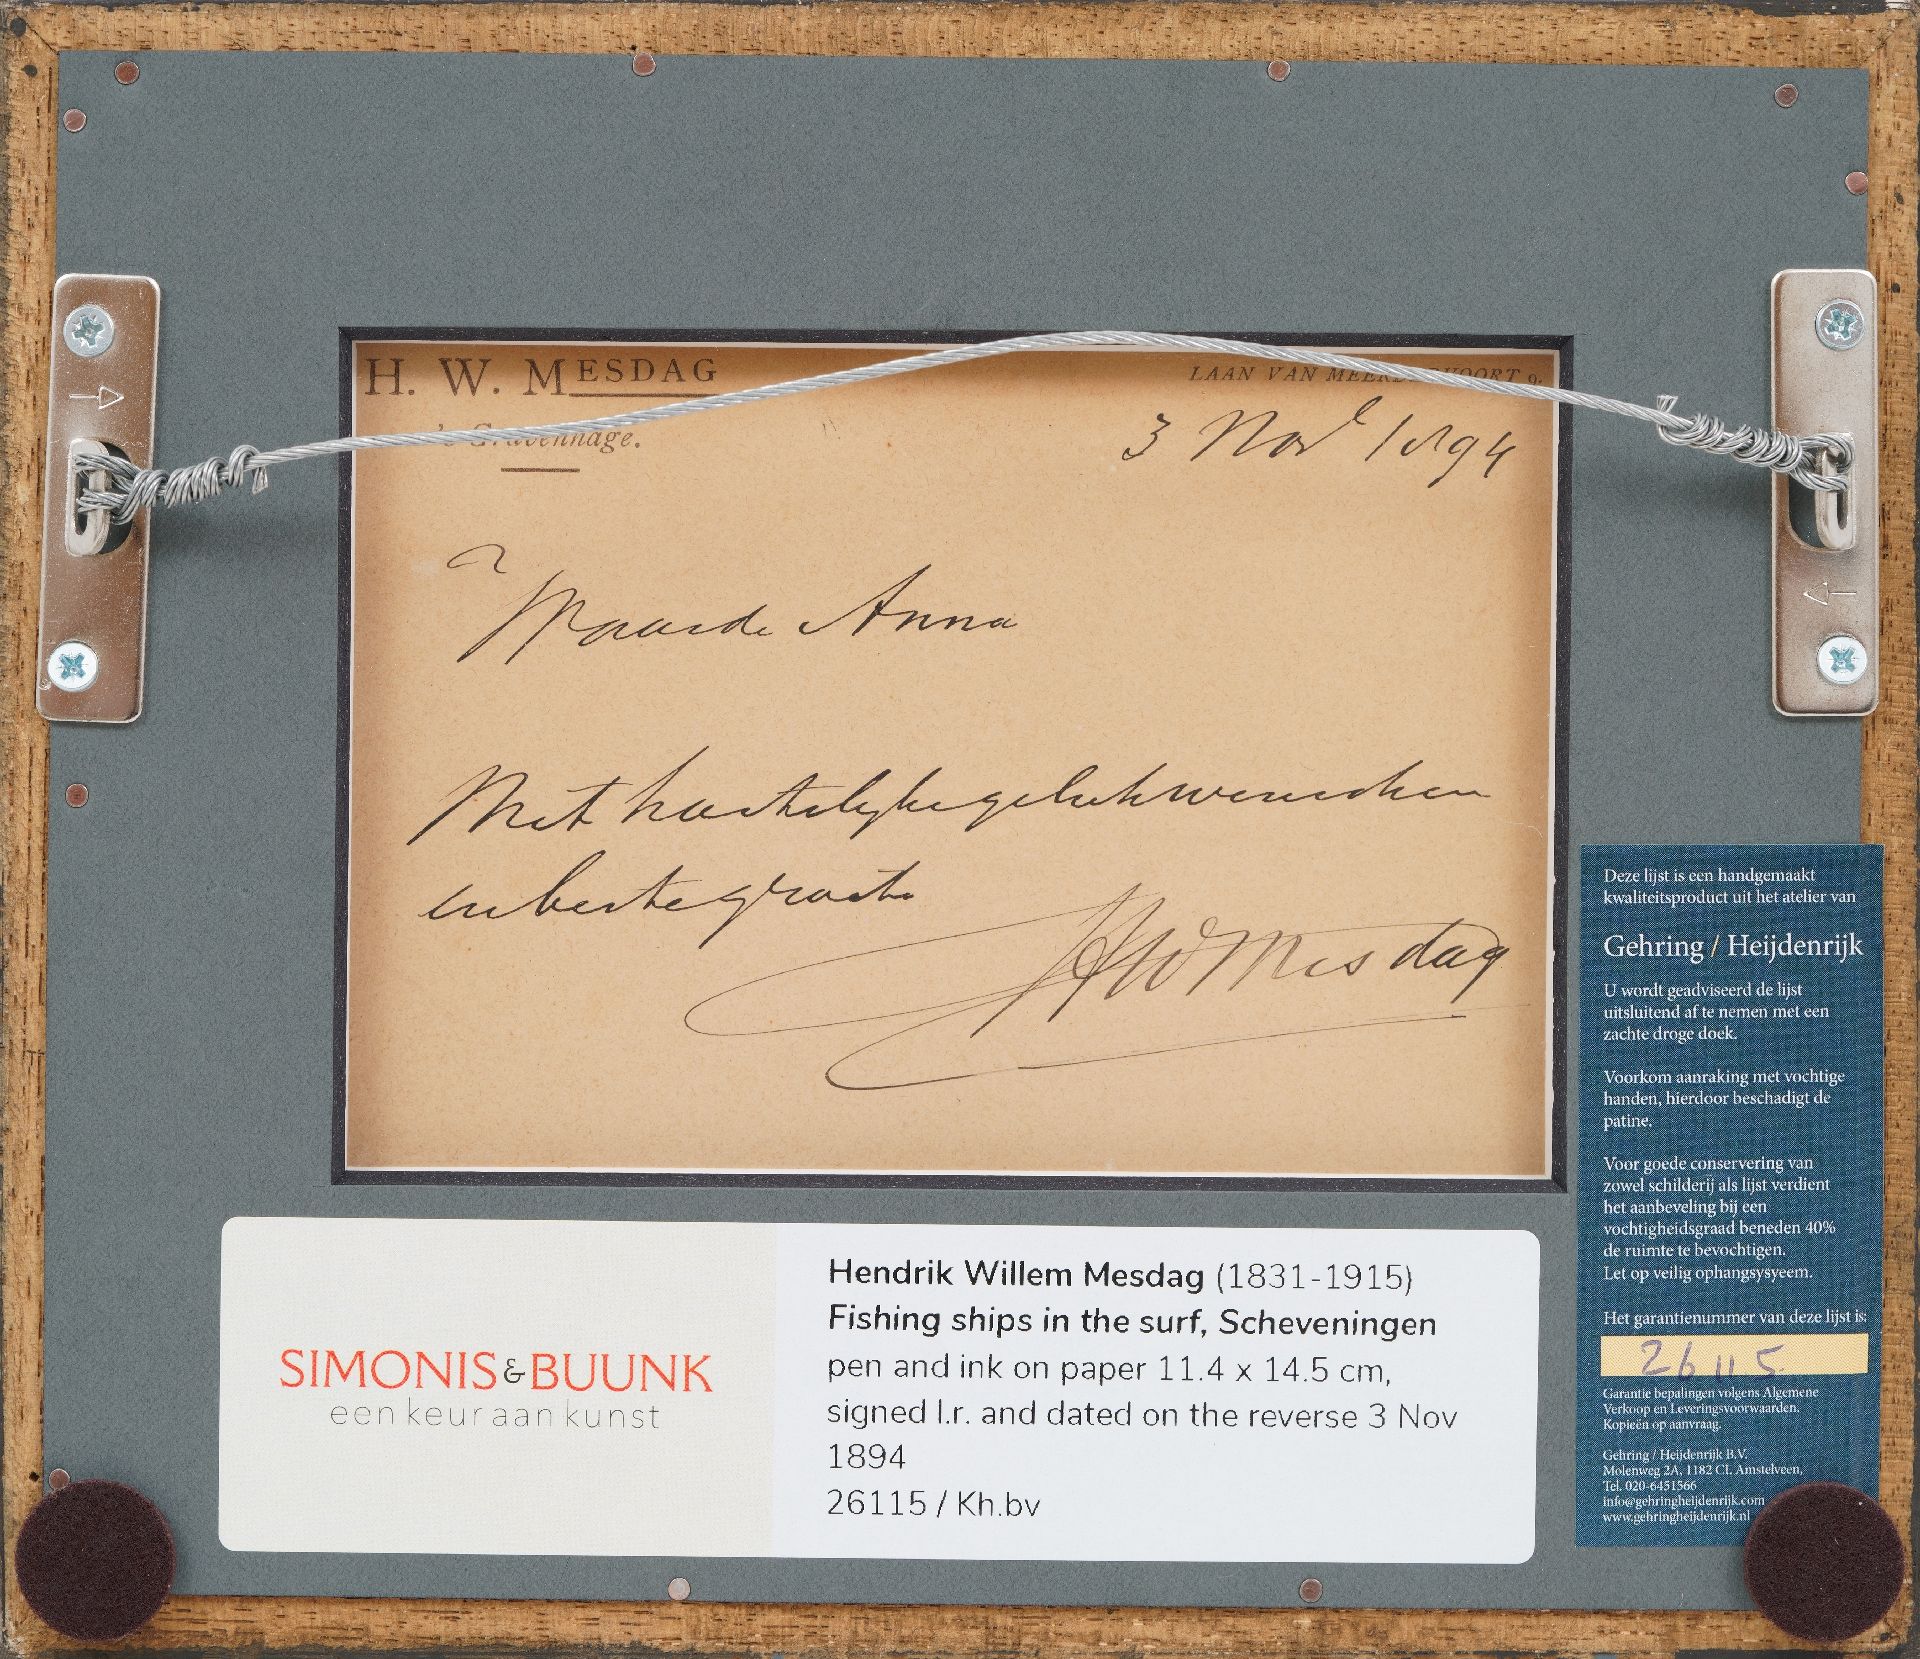 H. W. MESDAG
LAAN VAN MEERDERVOORT 9.
's Gravenhage.
3 Nov 1894
Waarde Anna
Met hartelijke gelukwenschen
en beste groete
HW Mesdag
SIMONIS & BUUNK
een keur aan kunst
Hendrik Willem Mesdag (1831-1915)
Fishing ships in the surf, Scheveningen
pen and ink on paper 11.4 x 14.5 cm,
signed l.r. and dated on the reverse 3 Nov
1894
26115 / Kh.bv
Deze lijst is een handgemaakt
kwaliteitsproduct uit het atelier van
Gehring / Heijdenrijk
U wordt geadviseerd de lijst
uitsluitend af te nemen met een
zachte droge doek.
Voorkom aanraking met vochtige
handen, hierdoor beschadigt de
patine.
Voor goede conservering van
zowel schilderij als lijst verdient
het aanbeveling bij een
vochtigheidsgraad beneden 40%
de ruimte te bevochtigen.
Let op veilig ophangsysyeem.
Het garantienummer van deze lijst is:
26115
Garantie bepalingen volgens Algemene
Verkoop en Leveringsvoorwaarden.
Kopieën op aanvraag.
Gehring / Heijdenrijk B.V.
Molenweg 2A, 1182 CL Amstelveen,
Tel. 020-6451566
info@gehringheijdenrijk.com
www.gehringheijdenrijk.nl